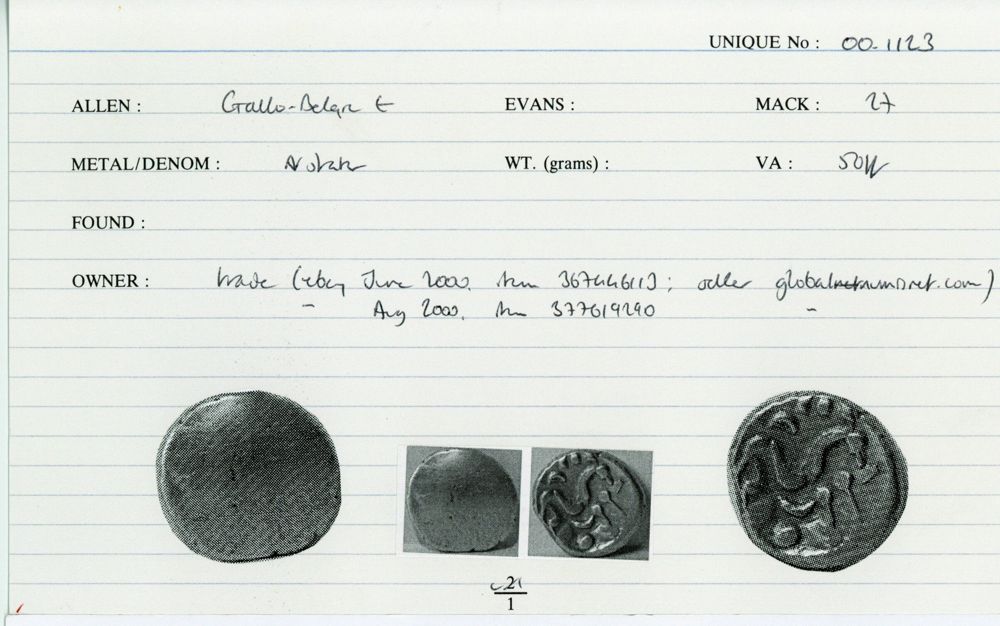 UNIQUE No : 00-1123
ALLEN : Gallo-Belgic E EVANS : MACK : 27
METAL/DENOM : AV stater WT. (grams) : VA :
FOUND :
OWNER : trade (ebay June 2000, item 367446113; seller globalnumisnet.com)
Aug 2000, item 377619290
1